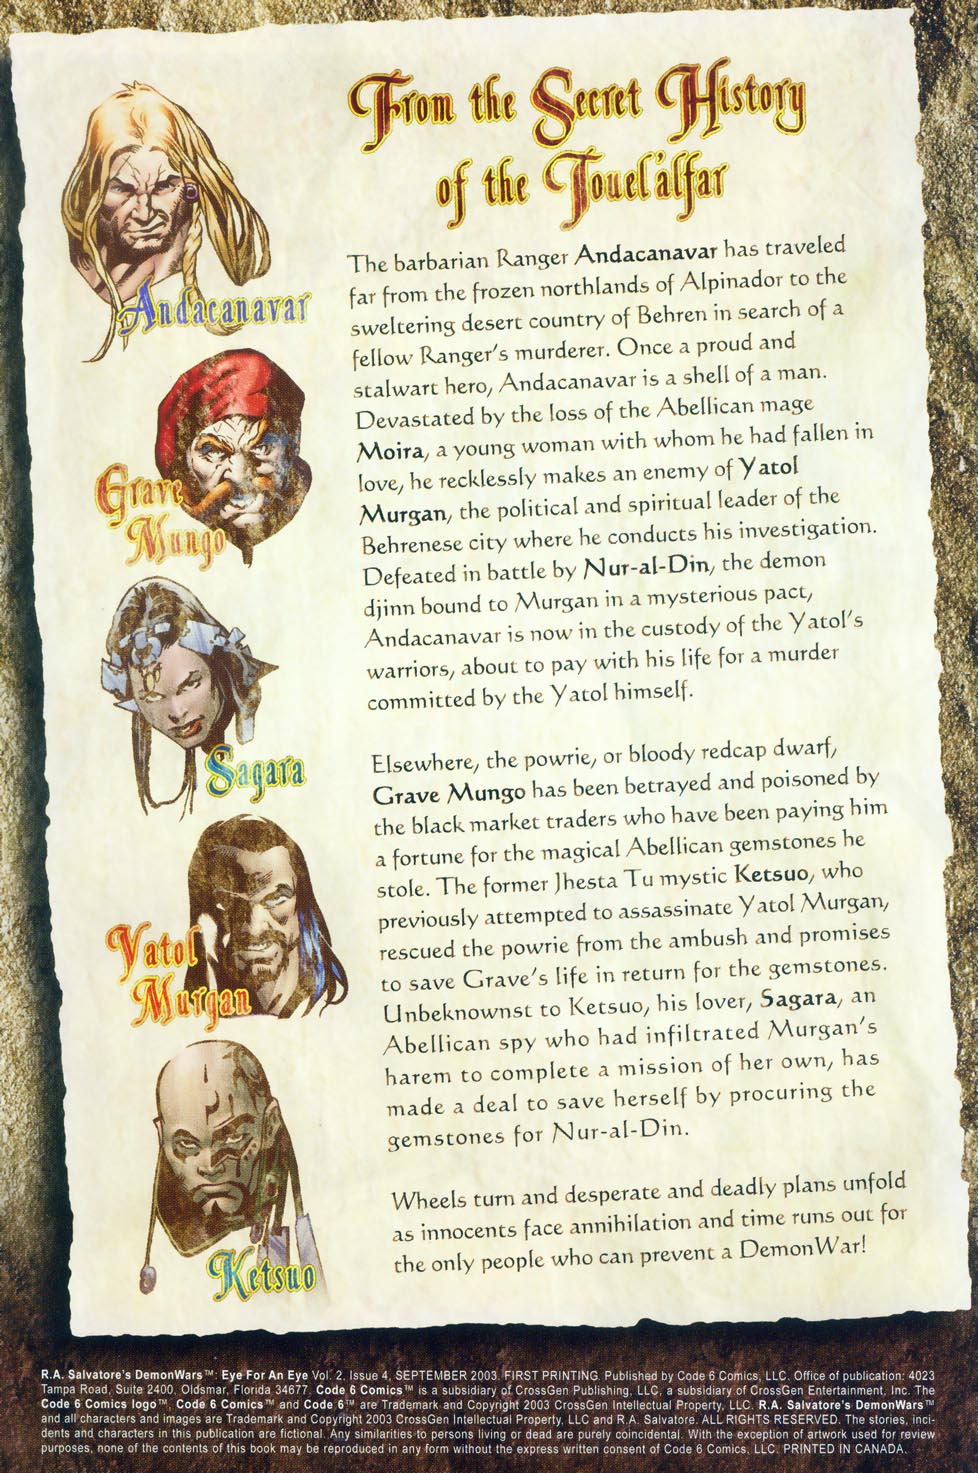 From the Secret History
of the Touel'alfar
Andacanavar
Grave
Mungo
Sagara
Yatol
Murgan
Ketsuo
The barbarian Ranger Andacanavar has traveled
far from the frozen northlands of Alpinador to the
sweltering desert country of Behren in search of a
fellow Ranger's murderer. Once a proud and
stalwart hero, Andacanavar is a shell of a man.
Devastated by the loss of the Abellican mage
Moira, a young woman with whom he had fallen in
love, he recklessly makes an enemy of Yatol
Murgan, the political and spiritual leader of the
Behrenese city where he conducts his investigation.
Defeated in battle by Nur-al-Din, the demon
djinn bound to Murgan in a mysterious pact,
Andacanavar is now in the custody of the Yatol's
warriors, about to pay with his life for a murder
committed by the Yatol himself.
Elsewhere, the powrie, or bloody redcap dwarf,
Grave Mungo has been betrayed and poisoned by
the black market traders who have been paying him
a fortune for the magical Abellican gemstones he
stole. The former Jhesta Tu mystic Ketsuo, who
previously attempted to assassinate Yatol Murgan,
rescued the powrie from the ambush and promises
to save Grave's life in return for the gemstones.
Unbeknownst to Ketsuo, his lover, Sagara, an
Abellican spy who had infiltrated Murgan's
harem to complete a mission of her own, has
made a deal to save herself by procuring the
gemstones for Nur-al-Din.
Wheels turn and desperate and deadly plans unfold
as innocents face annihilation and time runs out for
the only people who can prevent a DemonWar!
R.A. Salvatore's DemonWars™: Eye For An Eye Vol. 2, Issue 4, SEPTEMBER 2003. FIRST PRINTING. Published by Code 6 Comics, LLC. Office of publication: 4023
Tampa Road, Suite 2400, Oldsmar, Florida 34677. Code 6 Comics™ is a subsidiary of CrossGen Publishing, LLC, a subsidiary of CrossGen Entertainment, Inc. The
Code 6 Comics logo™, Code 6 Comics™ and Code 6™ are Trademark and Copyright 2003 CrossGen Intellectual Property, LLC. R.A. Salvatore's DemonWars™
and all characters and images are Trademark and Copyright 2003 CrossGen Intellectual Property, LLC and R.A. Salvatore. ALL RIGHTS RESERVED. The stories, inci-
dents and characters in this publication are fictional. Any similarities to persons living or dead are purely coincidental. With the exception of artwork used for review
purposes, none of the contents of this book may be reproduced in any form without the express written consent of Code 6 Comics, LLC. PRINTED IN CANADA.